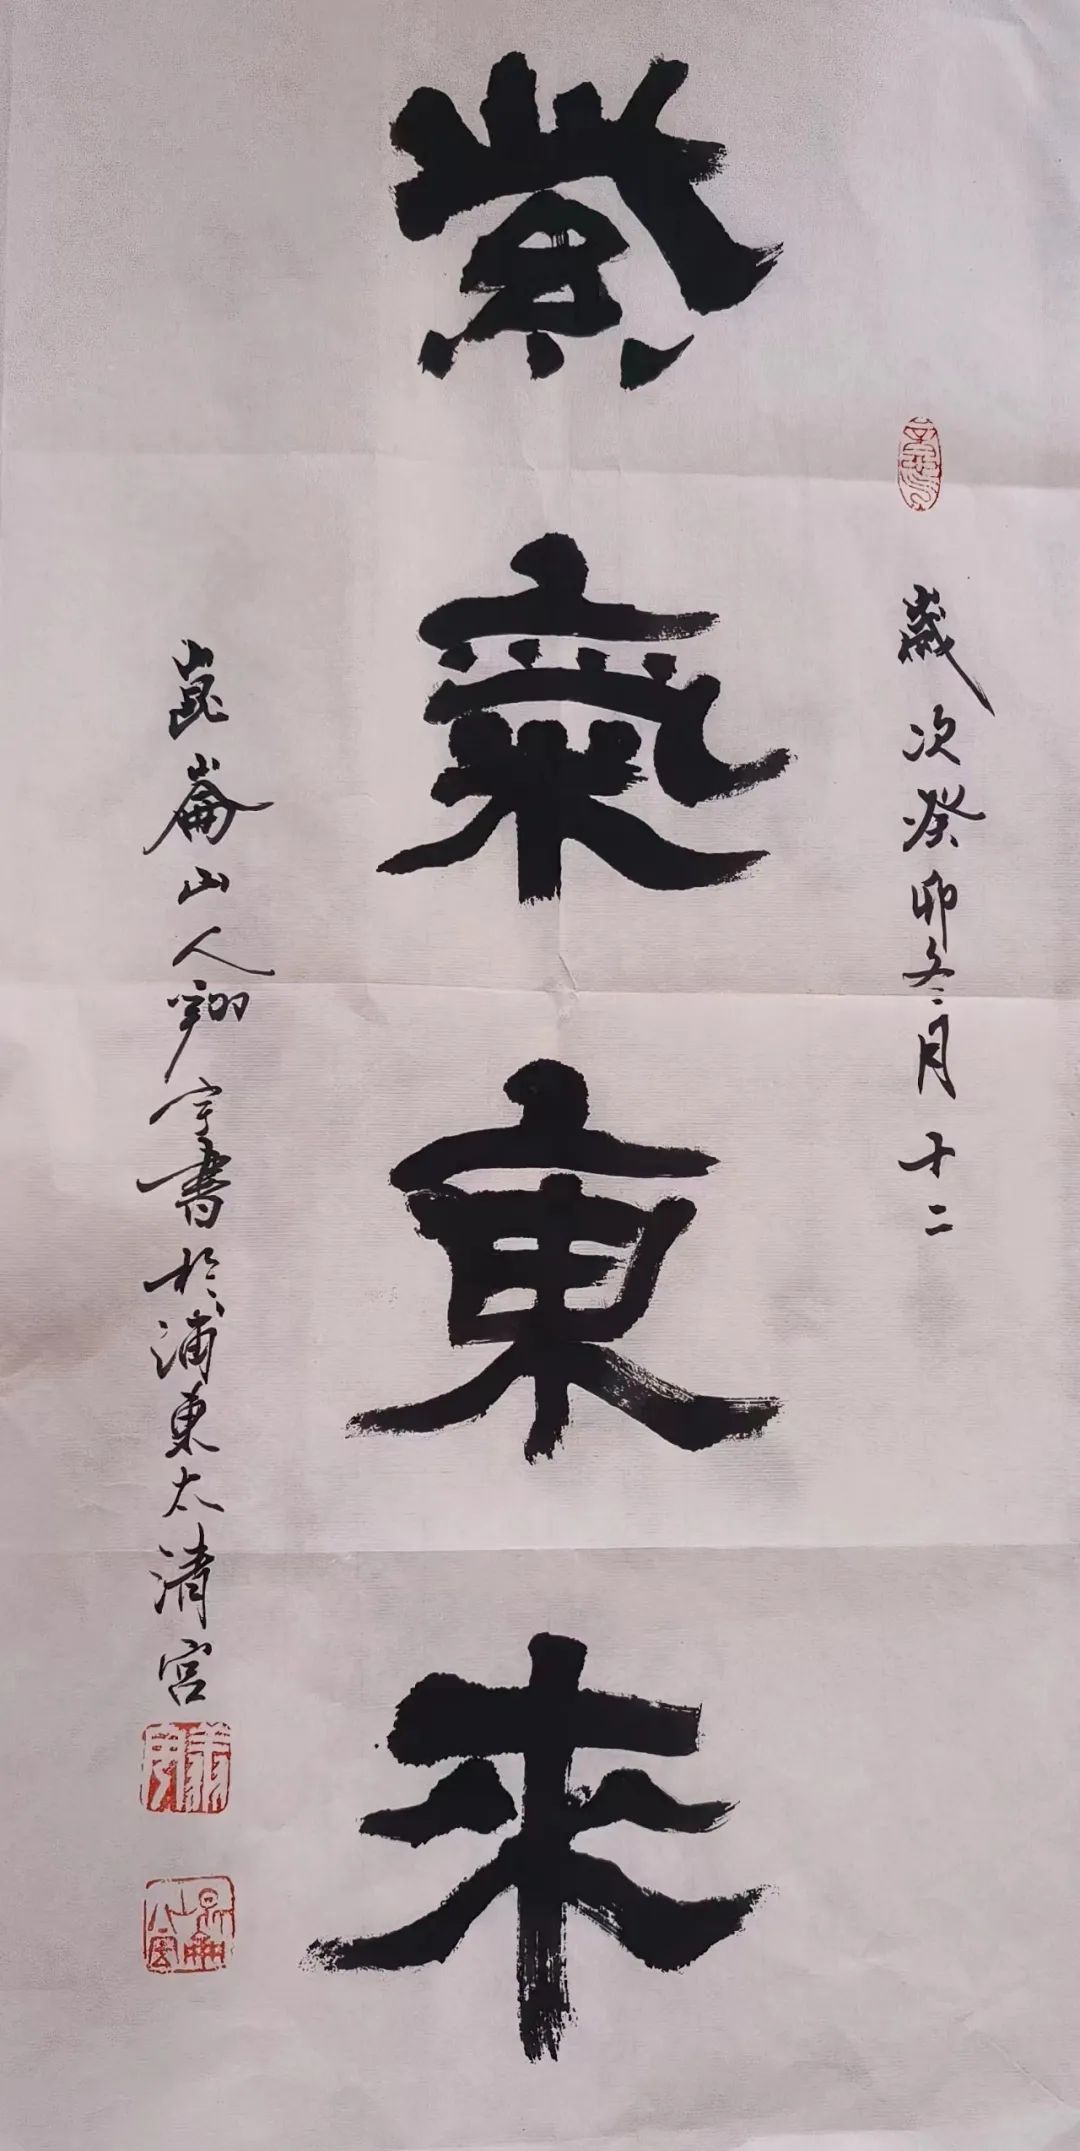 歲次癸卯冬月十二
紫氣東來
崑崙山人翱宇書於浦東太清宮